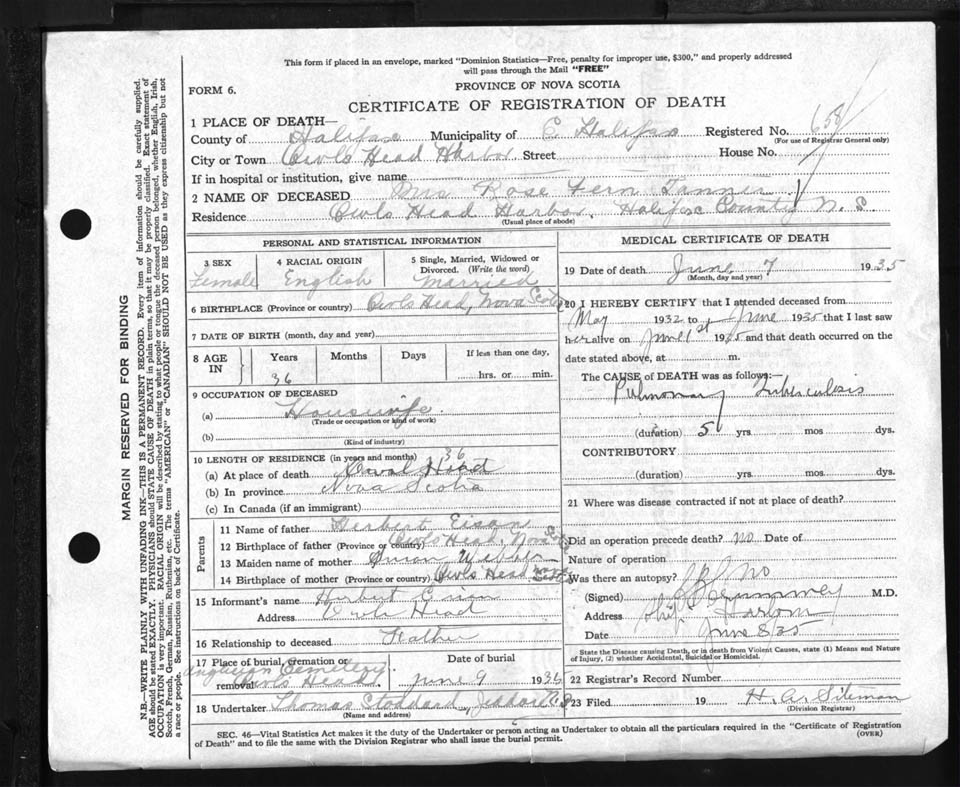 This form if placed in an envelope, marked "Dominion Statistics—Free, penalty for improper use, $300," and properly addressed
will pass through the Mail "FREE"
FORM 6.
PROVINCE OF NOVA SCOTIA
CERTIFICATE OF REGISTRATION OF DEATH
1 PLACE OF DEATH—
County of Halifax Municipality of E Halifax Registered No. 658
(For use of Registrar General only)
City or Town Owls Head Harbor Street House No.
If in hospital or institution, give name
2 NAME OF DECEASED Mrs Rose Fern Tanner
Residence Owls Head Harbor, Halifax County N. S.
(Usual place of abode)
PERSONAL AND STATISTICAL INFORMATION
3 SEX 4 RACIAL ORIGIN 5 Single, Married, Widowed or
Divorced. (Write the word)
Female English Married
6 BIRTHPLACE (Province or country) Owls Head, Nova Scotia
7 DATE OF BIRTH (month, day and year)
8 AGE IN Years Months Days If less than one day,
36 hrs. or min.
9 OCCUPATION OF DECEASED
(a) Housewife
(Trade or occupation or kind of work)
(b)
(Kind of industry)
10 LENGTH OF RESIDENCE (in years and months) 36
(a) At place of death
(b) In province Nova Scotia
(c) In Canada (if an immigrant)
Parents
11 Name of father Herbert
12 Birthplace of father (Province or country) Owls Head, Nova Scotia
13 Maiden name of mother Webber
14 Birthplace of mother (Province or country) Owls Head
15 Informant's name Herbert
Address Owls Head
16 Relationship to deceased Father
17 Place of burial, cremation or Date of burial
removal Anglican Cemetery
Owls Head June 9 1936
18 Undertaker Thomas Stoddard, Jeddore N.S
(Name and address)
MEDICAL CERTIFICATE OF DEATH
19 Date of death June 7 1935
(Month, day and year)
20 I HEREBY CERTIFY that I attended deceased from
May 1932 to June 1935 that I last saw
her alive on June 1st 1935 and that death occurred on the
date stated above, at m.
The CAUSE OF DEATH was as follows:—
Pulmonary Tuberculosis
(duration) 5 yrs. mos dys.
CONTRIBUTORY
(duration) yrs. mos. dys.
21 Where was disease contracted if not at place of death?
Did an operation precede death? no Date of
Nature of operation
Was there an autopsy? no
(Signed) M.D.
Address Ship Harbour
Date June 8 35
State the Disease causing Death, or in death from Violent Causes, state (1) Means and
Nature of Injury, (2) whether Accidental, Suicidal or Homicidal.
22 Registrar's Record Number
23 Filed 19 H. A. Siteman
(Division Registrar)
SEC. 46—Vital Statistics Act makes it the duty of the Undertaker or person acting as Undertaker to obtain all the particulars required in the "Certificate of Registration
of Death" and to file the same with the Division Registrar who shall issue the burial permit. (OVER)
MARGIN RESERVED FOR BINDING
N.B.—WRITE PLAINLY WITH UNFADING INK—THIS IS A PERMANENT RECORD. Every item of information should be carefully supplied.
AGE should be stated EXACTLY. PHYSICIANS should STATE CAUSE OF DEATH in plain terms, so that it may be properly classified. Exact statement of
OCCUPATION is very important. RACIAL ORIGIN will be described by stating to what people or tongue the deceased person belonged, whether English, Irish,
Scotch, French, German, Russian, Ruthenian, etc. The terms "AMERICAN" or "CANADIAN" SHOULD NOT BE USED as they express citizenship but not
a race or people. See instructions on back of Certificate.